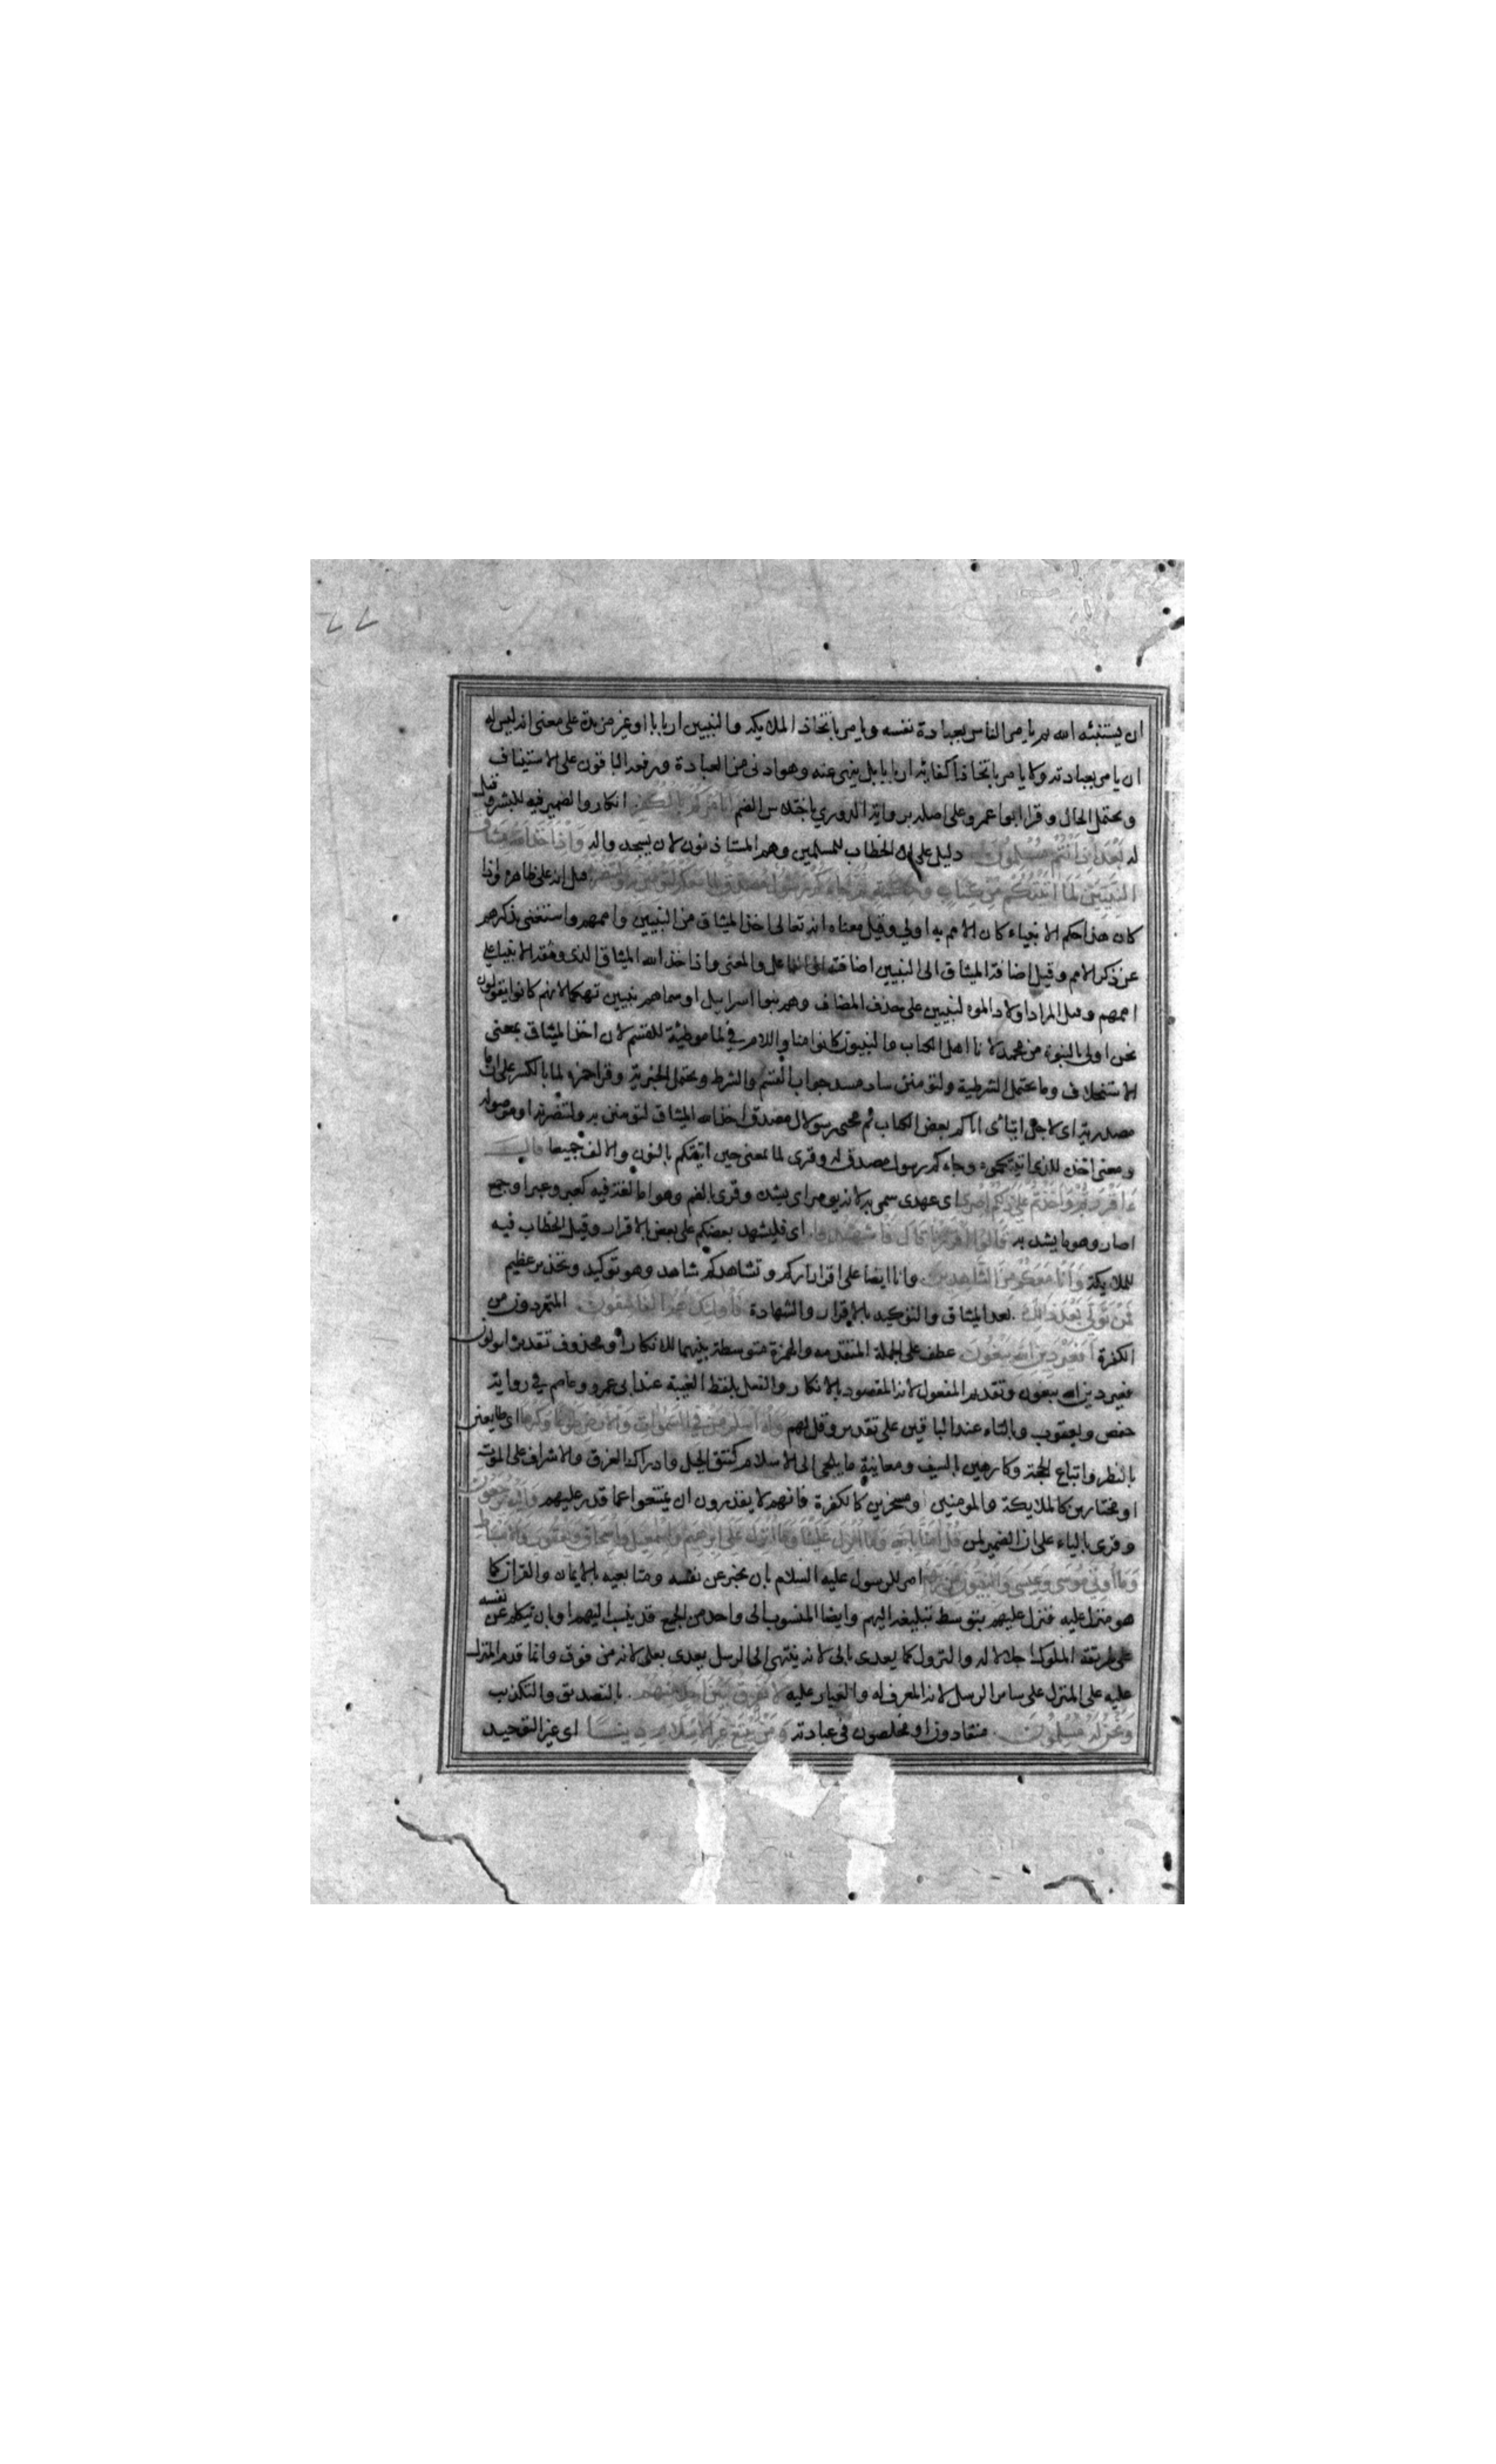 ان يستنبئه الله ثم يامر الناس بعبادة نفسه ويامر باتخاذ الملايكة والنبيين اربابا او غير مزيدة على معنى انه ليس له
ان يامر بعبادته ولا يامر باتخاذ اكفائه اربابا بل ينهى عنه وهو ادنى من العبادة ورفعه الباقون على الاستيناف
ويحتمل الحال وقرا ابو عمرو على اصله برواية الدوري باختلاس الضم ايامركم بالكفر انكار والضمير فيه للبشر وقيل
لله بعد اذ انتم مسلمون دليل على ان الخطاب للمسلمين وهم المستاذنون لان يسجدوا له واذ اخذ الله ميثاق
النبيين لما اتيتكم من كتاب وحكمة ثم جاءكم رسول مصدق لما معكم لتؤمنن به ولتنصرنه قيل انه على ظاهره واذا
كان هذا حكم الانبياء كان الامم به اولى وقيل معناه انه تعالى اخذ الميثاق من النبيين واممهم واستغنى بذكرهم
عن ذكر الامم وقيل اضافة الميثاق الى النبيين اضافته الى الفاعل والمعنى واذ اخذ الله الميثاق الذي وثقه الانبياء على
اممهم وقيل المراد اولاد النبيين على حذف المضاف وهم بنوا اسرايل او سماهم نبيين تهكما لانهم كانوا يقولون
نحن اولى بالنبوة من محمد لانا اهل الكتاب والنبيون كانوا منا واللام في لما موطئة للقسم لان اخذ الميثاق بمعنى
الاستحلاف وما يحتمل الشرطية ولتؤمنن ساد مسد جواب القسم والشرط ويحتمل الخبرية وقرا حمزة لما بالكسر على ان ما
مصدرية اى لاجل ايتائى اياكم بعض الكتاب ثم مجئ رسول مصدق اخذ الله الميثاق لتؤمنن به ولتنصرنه او موصولة
ومعنى اخذه للذى اتيتكموه وجاءكم رسول مصدق له وقرى لما بمعنى حين اتيتكم بالنون والالف جميعا قال
ءاقررتم واخذتم على ذلكم اصرى اى عهدى سمى به لانه يوصر اى يشد وقرى بالضم وهو اما لغة فيه كعبر وعبر او جمع
اصار وهو ما يشد به قالوا اقررنا قال فاشهدوا اى فليشهد بعضكم على بعض بالاقرار وقيل الخطاب فيه
للملايكة وانا معكم من الشاهدين وانا ايضا على اقراركم وتشاهدكم شاهد وهو توكيد وتحذير عظيم
فمن تولى بعد ذلك بعد الميثاق والتوكيد بالاقرار والشهادة فاولئك هم الفاسقون المتمردون من
الكفرة افغير دين الله يبغون عطف على الجملة المتقدمه والهمزة متوسطة بينهما للانكار او محذوف تقديره اتتولون
فغير دين الله يبغون وتقديم المفعول لانه المقصود بالانكار والفعل بلفظ الغيبة عند ابى عمرو وعاصم في رواية
حفص ويعقوب وبالتاء عند الباقين على تقدير وقل لهم وله اسلم من في السموات والارض طوعا وكرها اى طايعين
بالنظر واتباع الحجة وكارهين بالسيف ومعاينة ما يلجى الى الاسلام كنتق الجبل وادراك الغرق والاشراف على الموت
او مختارين كالملايكة والمومنين او مسخرين كالكفرة فانهم لا يقدرون ان يمتنعوا عما قدر عليهم واليه ترجعون
وقرى بالياء على ان الضمير لمن قل امنا بالله وما انزل علينا وما انزل على ابرهيم واسمعيل واسحاق ويعقوب والاسباط
وما اوتى موسى وعيسى والنبيون من ربهم امر للرسول عليه السلام بان يخبر عن نفسه ومتابعيه بالايمان والقران كما
هو منزل عليه منزل عليهم بتوسط تبليغه اليهم وايضا المنسوب الى واحد من الجمع قد ينسب اليهم او بان يتكلم عن نفسه
على طريقة الملوك اجلالا له والنزول كما يعدى بالى لانه ينتهى الى الرسل يعدى بعلى لانه من فوق وانما قدم المنزل
عليه على المنزل على ساير الرسل لانه المعرف له والعيار عليه لا نفرق بين احد منهم بالتصديق والتكذيب
ونحن له مسلمون منقادون او مخلصون فى عبادته ومن يبتغ غير الاسلام دينا اى غير التوحيد